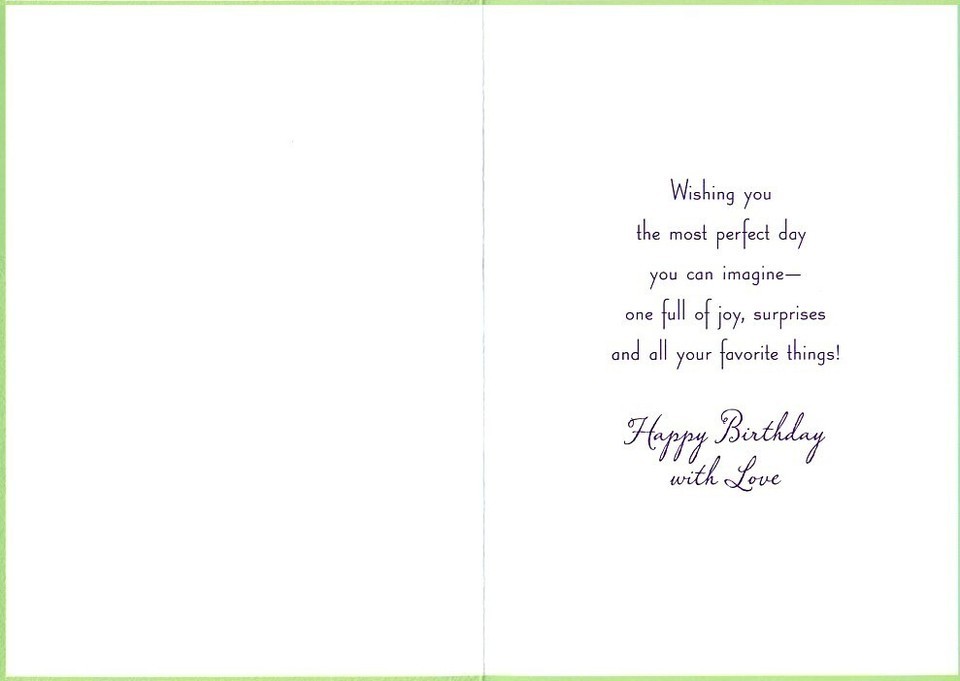 Wishing you
the most perfect day
you can imagine—
one full of joy, surprises
and all your favorite things!
Happy Birthday
with Love